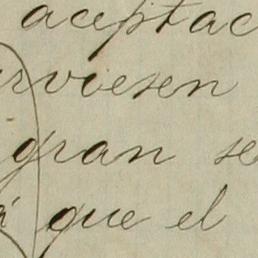 aceptac
rviesen
gran se
á que el